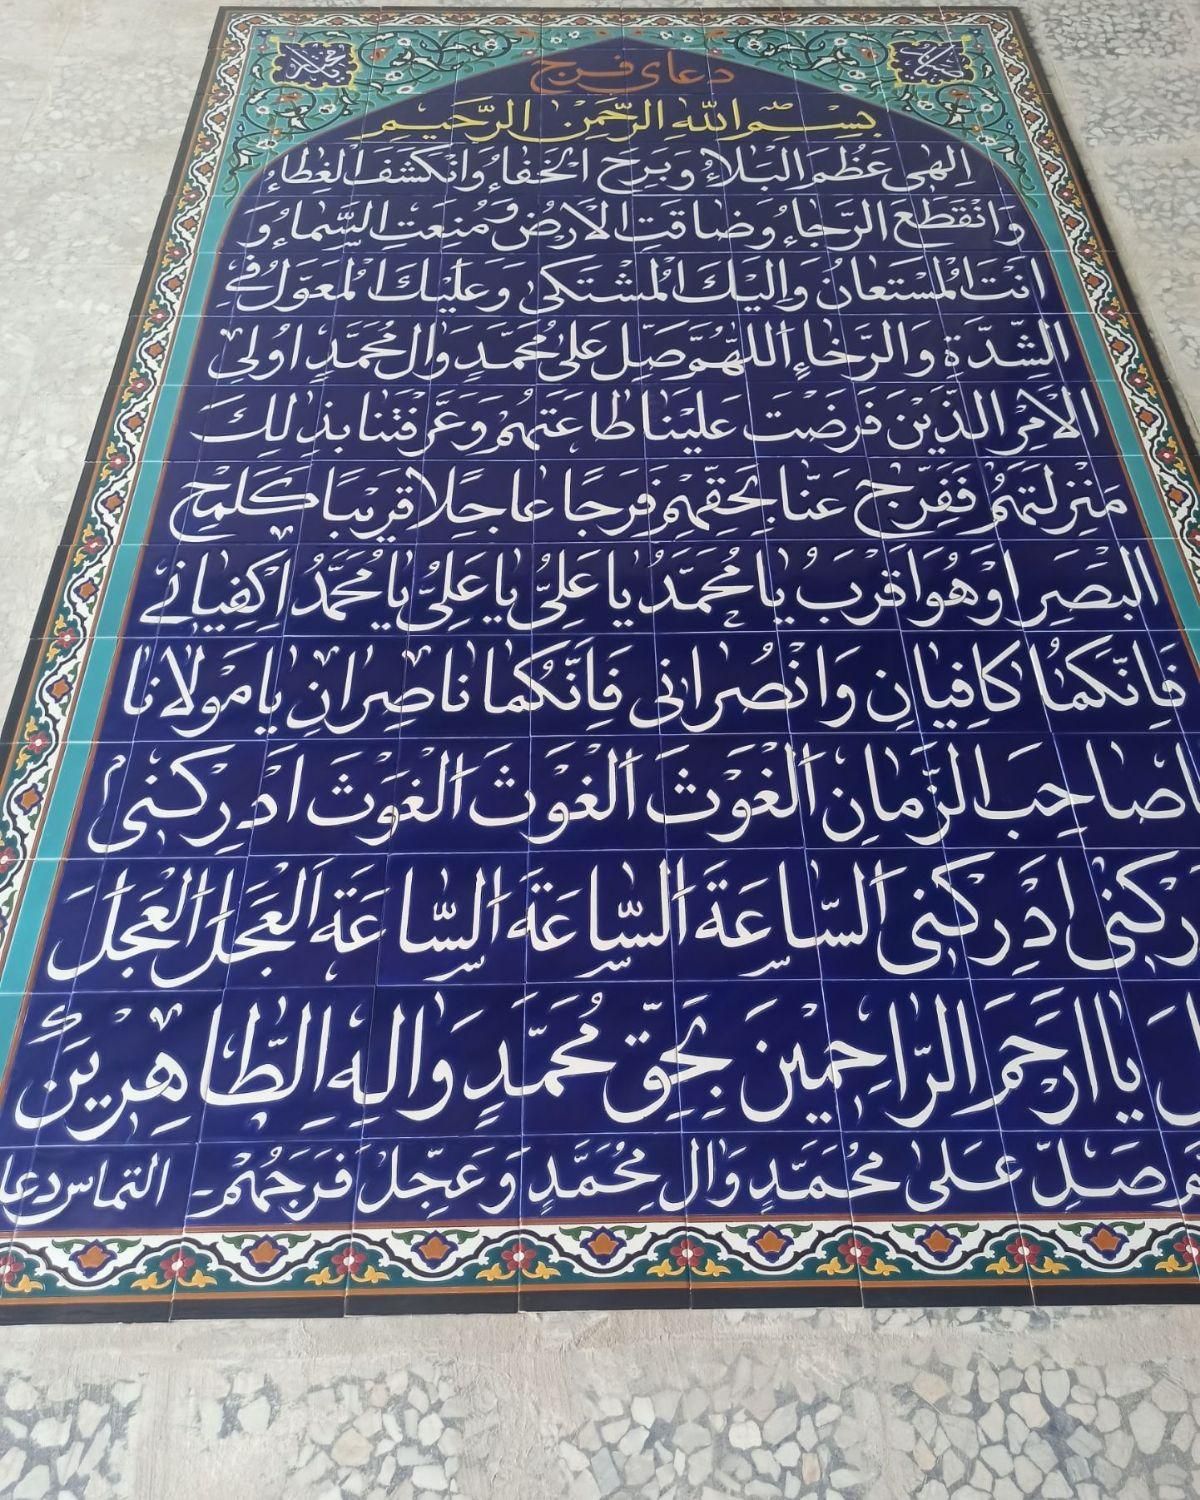 دعای فرج
بسم الله الرحمن الرحيم
اِلهى عَظُمَ الْبَلاءُ وَبَرِحَ الْخَفاءُ وَانْكَشَفَ الْغِطاءُ
وَانْقَطَعَ الرَّجاءُ وَضاقَتِ الْاَرْضُ وَمُنِعَتِ السَّماءُ وَ
اَنْتَ الْمُسْتَعانُ وَاِلَيْكَ الْمُشْتَكى وَعَلَيْكَ الْمُعَوَّلُ فِى
الشِّدَّةِ وَالرَّخاءِ اَللّهُمَّ صَلِّ عَلى مُحَمَّدٍ وَالِ مُحَمَّدٍ اُولِى
الْاَمْرِ الَّذينَ فَرَضْتَ عَلَيْنا طاعَتَهُمْ وَعَرَّفْتَنا بِذلِكَ
مَنْزِلَتَهُمْ فَفَرِّجْ عَنّا بِحَقِّهِمْ فَرَجًا عاجِلًا قَريبًا كَلَمْحِ
الْبَصَرِ اَوْ هُوَ اَقْرَبُ يا مُحَمَّدُ يا عَلِىُّ يا عَلِىُّ يا مُحَمَّدُ اِكْفِيانى
فَاِنَّكُما كافِيانِ وَانْصُرانى فَاِنَّكُما ناصِرانِ يا مَوْلانا
صاحِبَ الزَّمانِ اَلْغَوْثَ اَلْغَوْثَ اَلْغَوْثَ اَدْرِكْنى
رِكْنى اَدْرِكْنى اَلسّاعَةَ اَلسّاعَةَ اَلسّاعَةَ اَلْعَجَلَ اَلْعَجَلَ
لَ يا اَرْحَمَ الرّاحِمينَ بِحَقِّ مُحَمَّدٍ وَالِهِ الطّاهِرينَ
صَلِّ عَلى مُحَمَّدٍ وَالِ مُحَمَّدٍ وَعَجِّلْ فَرَجَهُمْ - التماس دعا